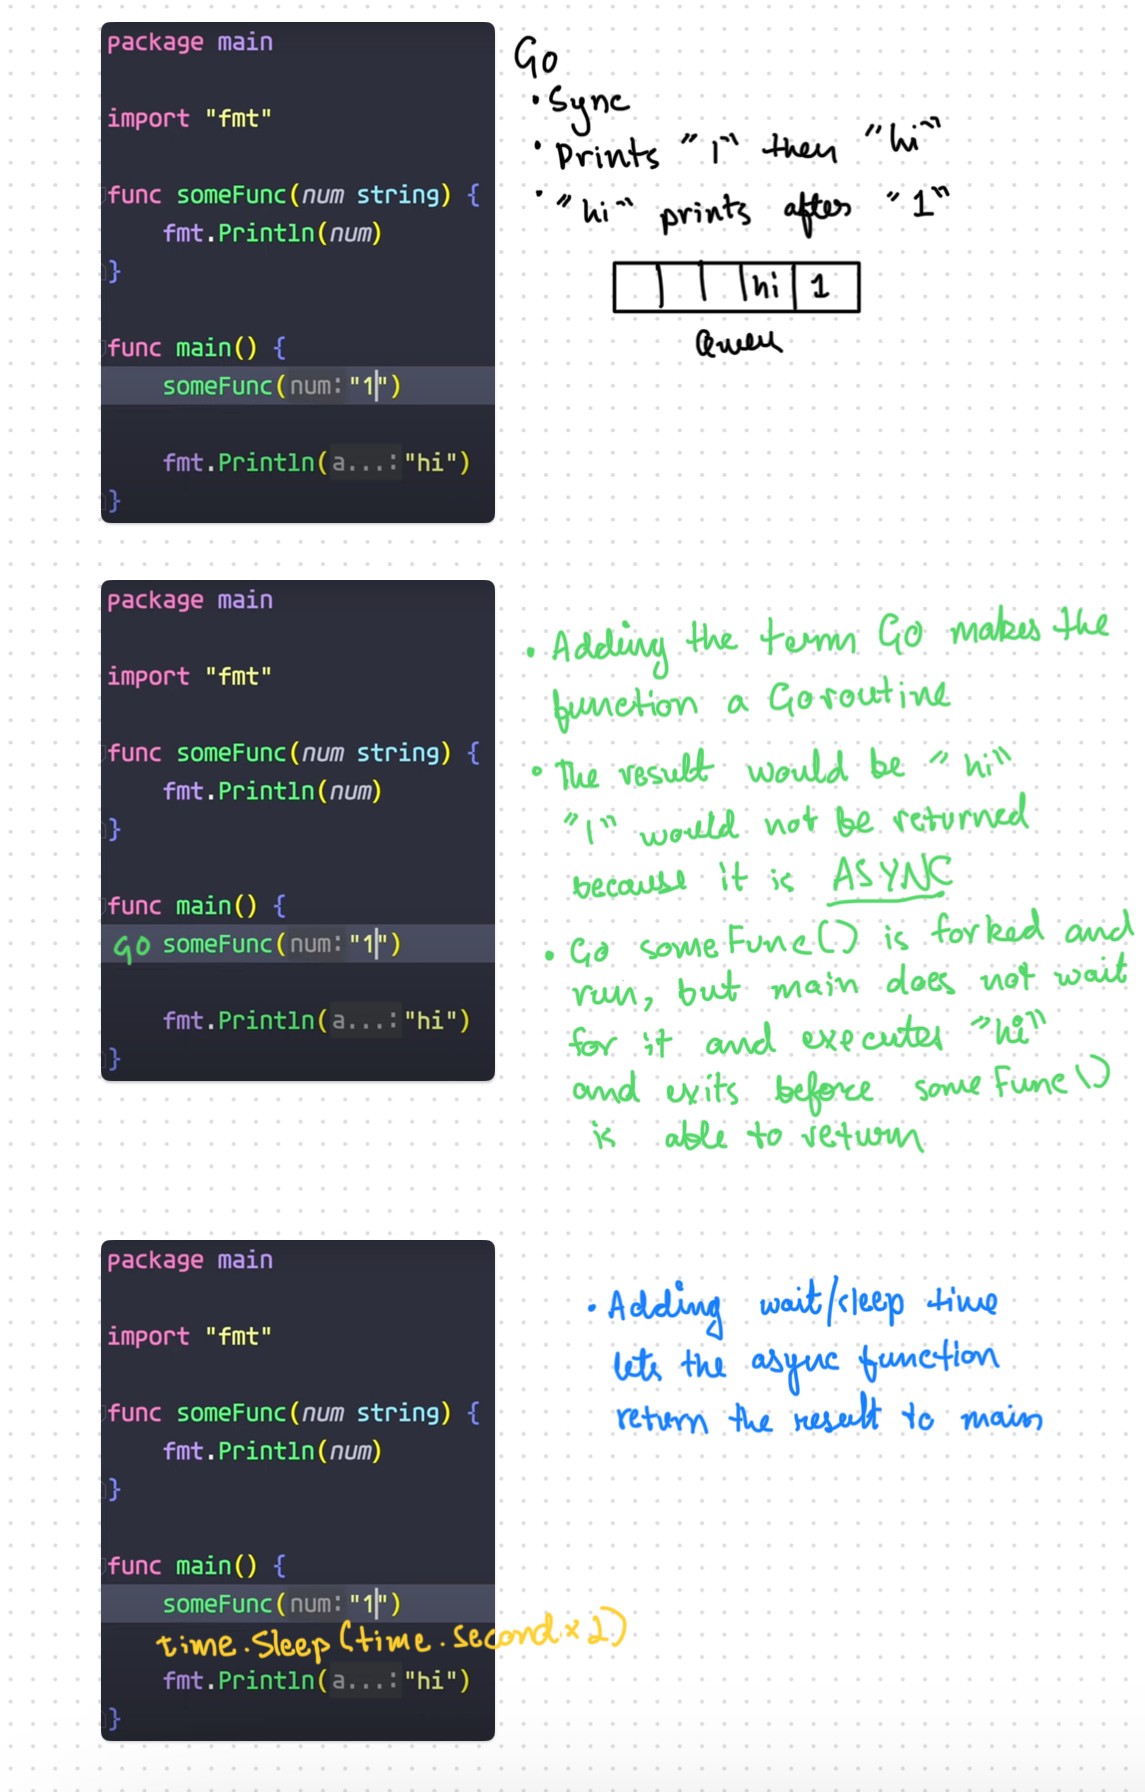 package main
import "fmt"
func someFunc(num string) {
fmt.Println(num)
}
func main() {
someFunc(num: "1")
fmt.Println(a...: "hi")
}
Go
• Sync
• Prints "1" then "hi"
• "hi" prints after "1"
hi 1
package main
import "fmt"
func someFunc(num string) {
fmt.Println(num)
}
func main() {
GO someFunc(num: "1")
fmt.Println(a...: "hi")
}
• Adding the term GO makes the
function a Goroutine
• The result would be "hi"
"1" would not be returned
because it is ASYNC
• Go someFunc() is forked and
run, but main does not wait
for it and executes "hi"
and exits before someFunc()
is able to return
package main
import "fmt"
func someFunc(num string) {
fmt.Println(num)
}
func main() {
someFunc(num: "1")
time.Sleep(time.second × 2)
fmt.Println(a...: "hi")
}
• Adding wait/sleep time
lets the async function
return the result to main